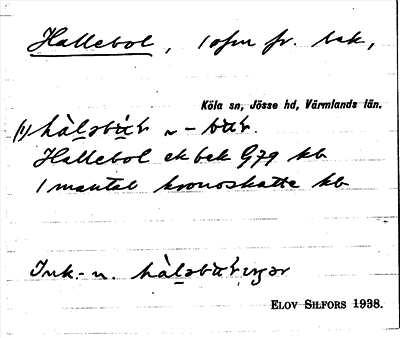 Hallebol, 1 ofm fr. bek,
Köla sn, Jösse hd, Värmlands län.
(1) hàl̠sbu̠r ~ -bur.
Hallebol ek bek G79 kb
1 mantal kronoskatte kb
Ink.-n. hàl̠sbur
ELOV SILFORS 1938.